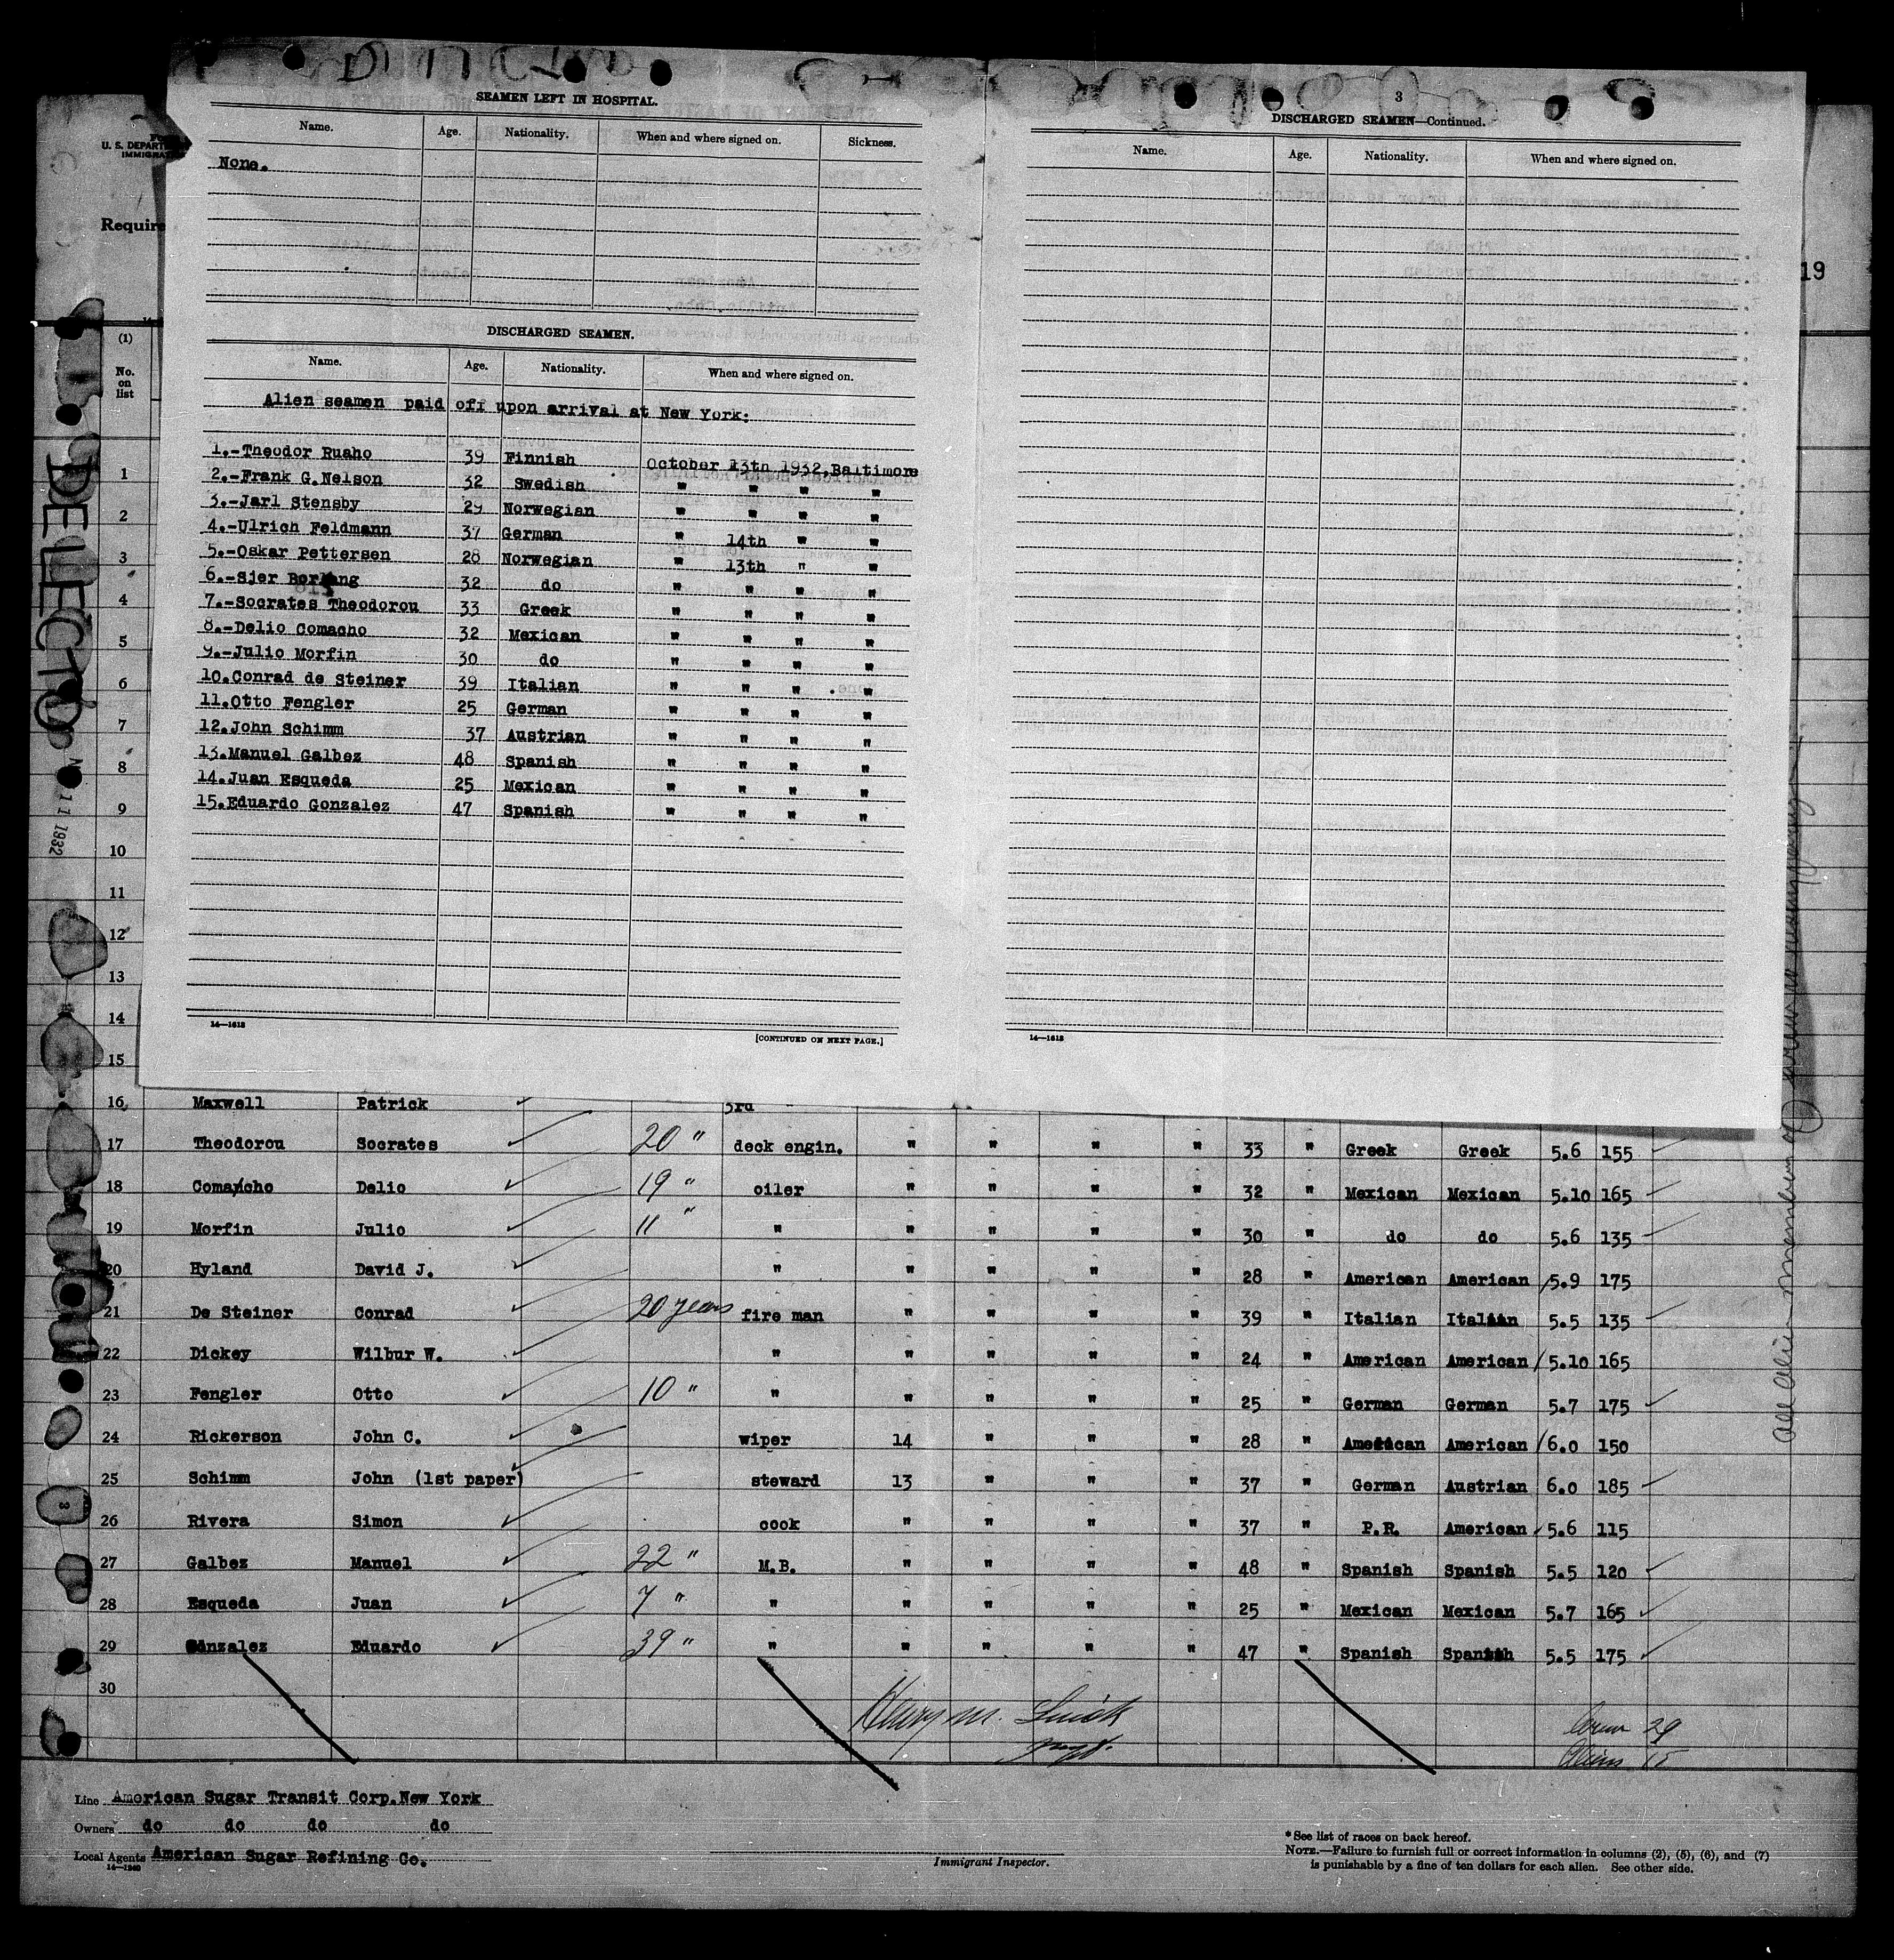 SEAMEN LEFT IN HOSPITAL.
Name. Age. Nationality. When and where signed on. Sickness.
None.
DISCHARGED SEAMEN.
Name. Age. Nationality. When and where signed on.
Alien seamen paid off upon arrival at New York:
1.-Theodor Ruaho 39 Finnish October 13th 1932,Baltimore
2.-Frank G.Nelson 32 Swedish " " " "
3.-Jarl Stensby 29 Norwegian " " " "
4.-Ulrich Feldmann 37 German " 14th " "
5.-Oskar Pettersen 28 Norwegian " 13th " "
6.-Sjer 32 do " " " "
7.-Socrates Theodorou 33 Greek " " " "
8.-Delio Comacho 32 Mexican " " " "
9.-Julio Morfin 30 do " " " "
10.Conrad de Steiner 39 Italian " " " "
11.Otto Fengler 25 German " " " "
12.John Schimm 37 Austrian " " " "
13.Manuel Galbez 48 Spanish " " " "
14.Juan Esqueda 25 Mexican " " " "
15.Eduardo Gonzalez 47 Spanish " " " "
14—1613
[CONTINUED ON NEXT PAGE.]
3
DISCHARGED SEAMEN—Continued.
Name. Age. Nationality. When and where signed on.
14—1613
U. S. DEPART
IMMIGRA
Require
19
(1)
No. on list
DELECTO
11 1932
1
2
3
4
5
6
7
8
9
10
11
12
13
14
15
16 Maxwell Patrick 3rd
17 Theodorou Socrates 20 " deck engin. " " " " 33 " Greek Greek 5.6 155
18 Comacho Delio 19 " oiler " " " " 32 " Mexican Mexican 5.10 165
19 Morfin Julio 11 " " " " " " 30 " do do 5.6 135
20 Hyland David J. " " " " " 28 " American American 5.9 175
21 De Steiner Conrad 20 years fire man " " " " 39 " Italian Italian 5.5 135
22 Dickey Wilbur W. " " " " " 24 " American American 5.10 165
23 Fengler Otto 10 " " " " " " 25 " German German 5.7 175
24 Rickerson John C. wiper 14 " " " 28 " American American 6.0 150
25 Schimm John (1st paper) steward 13 " " " 37 " German Austrian 6.0 185
26 Rivera Simon cook " " " " 37 " P.R. American 5.6 115
27 Galbez Manuel 22 " M.B. " " " " 48 " Spanish Spanish 5.5 120
28 Esqueda Juan 7 " " " " " " 25 " Mexican Mexican 5.7 165
29 Gonzalez Eduardo 39 " " " " " " 47 " Spanish Spanish 5.5 175
30
Henry M.
29
Aliens 15
Line American Sugar Transit Corp.New York
Owners do do do do
Local Agents American Sugar Refining Co.
Immigrant Inspector.
* See list of races on back hereof.
NOTE.—Failure to furnish full or correct information in columns (2), (5), (6), and (7)
is punishable by a fine of ten dollars for each alien. See other side.